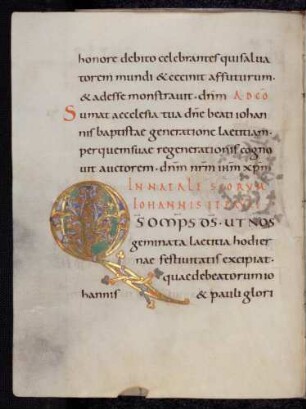 honore debito celebrantes qui salua
torem mundi & cecinit affuturum.
& adesse monstrauit. dnm AD CO
Sumat aecclesia tua dne beati iohan
nis baptistae generatione laetitiam.
per quem suae regenerationis cogno
uit auctorem. dnm nrm ihm xpm
IN NATALE SCORUM
IOHANNIS
QS OMPS DS. UT NOS
geminata laetitia hodier
nae festiuitatis excipiat.
quae de beatorum io
hannis & pauli glori